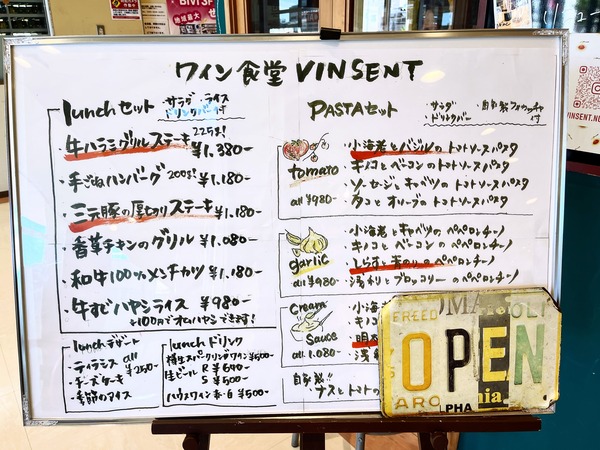 ワイン食堂 VINSENT
lunchセット
・サラダ ・ライス
ドリンクバー付
・牛ハラミグリルステーキ 225g! ¥1,380-
・手ごねハンバーグ 200g! ¥1,180-
・三元豚の厚切りステーキ ¥1,180-
・香草チキンのグリル ¥1,080-
・和牛100%メンチカツ ¥1,180-
・牛すじハヤシライス ¥980-
+100円でオムハヤシできます!
lunch デザート
・ティラミス all
・チーズケーキ ¥250-
・季節のアイス
lunch ドリンク
樽生スパークリングワイン ¥500-
生ビール R ¥690-
S ¥500-
ハウスワイン 赤・白 ¥500-
PASTAセット
・サラダ ・自家製フォカッチャ付
・ドリンクバー
tomato
all ¥980-
・小海老とバジルのトマトソースパスタ
・キノコとベーコンのトマトソースパスタ
・ソーセージとキャベツのトマトソースパスタ
・タコとオリーブのトマトソースパスタ
garlic
all ¥980-
・小海老とキャベツのペペロンチーノ
・キノコとベーコンのペペロンチーノ
・しらすと青のりのペペロンチーノ
・浅利とブロッコリーのペペロンチーノ
Cream Sauce
all 1,080-
・小海
・キノコ
・明太
・浅
自家製!!
ナスとトマトの
OPEN
ALPHA